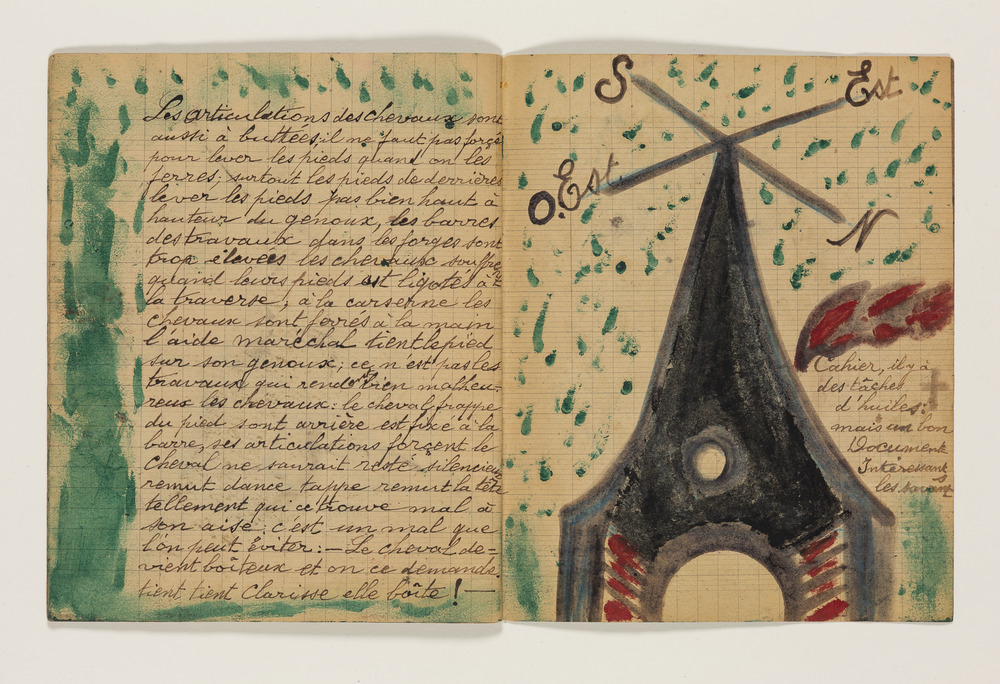 Les articulations des chevaux sont
aussi à buttées, il ne faut pas forçé
pour lever les pieds quand on les
ferres; surtout les pieds de derrières
lever les pieds pas bien haut à
hauteur du genoux, les barres
des travaux dans les forges sont
trop élevées les chevaux souffre
quand leurs pieds est ligotés à
la traverse; à la caserne les
chevaux sont ferrés à la main
l'aide maréchal tient le pied
sur son genoux; ce n'est pas les
travaux qui rende bien malheu-
reux les chevaux: le cheval frappe
du pied sont arrière est fixé à la
barre, ses articulations forçent le
cheval ne saurait resté silencieux
remut dance tappe remut la tête
tellement qui ce trouve mal à
son aise c'est un mal que
l'on peut éviter: — Le cheval de=
vient boîteux et on ce demande.
tient tient Clarisse elle boîte! —
S
Est
O. Est
N
Cahier, il y à
des tâches
d'huiles:
mais un bon
Document
Intéressant
les savants